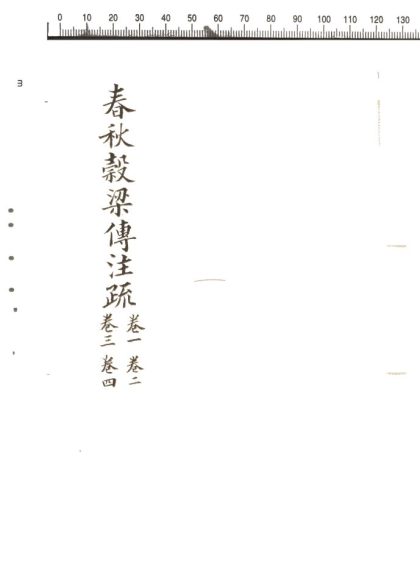 0 10 20 30 40 50 60 70 80 90 100 110 120 130
3
春秋穀梁傳注疏
卷一 卷二
卷三 卷四